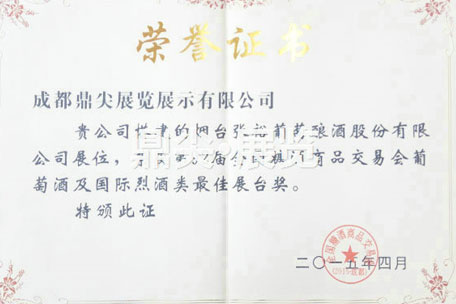 荣誉证书
成都鼎尖展览展示有限公司
贵公司搭建的烟台张裕葡萄酿酒股份有限
公司展位，届全国糖酒商品交易会葡
萄酒及国际烈酒类最佳展台奖。
特颁此证
二〇一五年四月
鼎尖展览